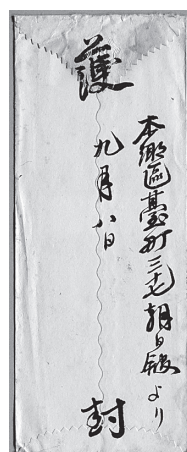 本郷區臺町三十七朝日館より
九月八日
護
封